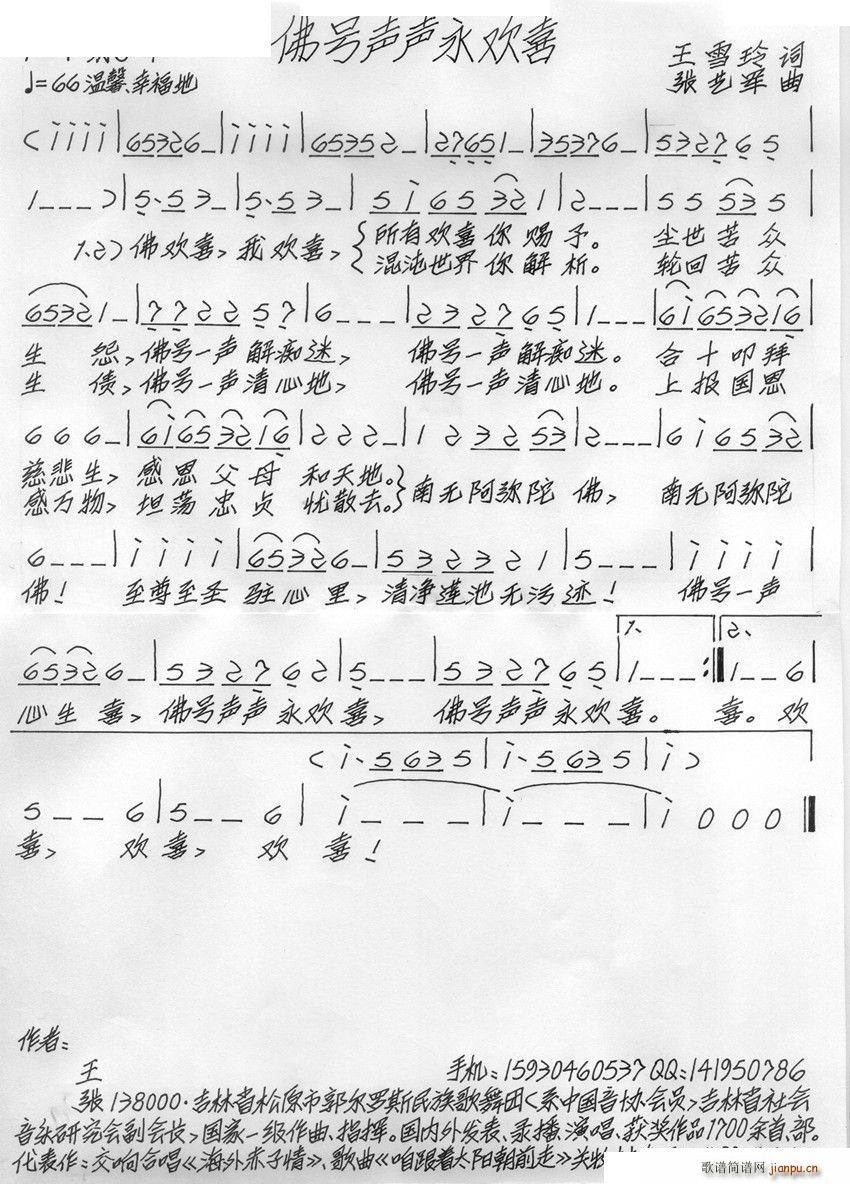 佛号声声永欢喜
王雪玲 词
♩=66 温馨、幸福地
张艺军 曲
(i i i i | 65326_ | i i i i | 65352_ | 27651_ | 35376_ | 5327 6 5
1___) | 5·53_ | 5·53_ | 5i65321 | 2___ | 55535
1.2) 佛欢喜, 我欢喜, {所有欢喜你赐予。 尘世苦众
混沌世界你解析。 轮回苦众
65321_ | 772257 | 6___ | 232765 | 1___ | 6i653216 |
生 怨, 佛号一声解痴迷, 佛号一声解痴迷。 合十叩拜
生 债, 佛号一声清心地, 佛号一声清心地。 上报国恩
666_ | 6i653216 | 222_ | 1232253 | 2___ | 6i6532 |
慈悲生, 感恩父母 和天地。
感万物, 坦荡忠贞 忧散去。} 南无阿弥陀佛, 南无阿弥陀
6___ | i i i i | 65326_ | 532321 | 5___ | i i i i |
佛! 至尊至圣 驻心里, 清净莲池无污迹! 佛号一声
1. 2.
65326_ | 532762 | 5___ | 532765 | 1___ :| 1__6 |
心生喜, 佛号声声永欢喜, 佛号声声永欢喜。 喜。欢
(i·5635 | i·5635 | i)
5__6 | 5__6 | i___ | i___ | i000
喜, 欢喜, 欢喜!
作者:
王 手机:15930460537 QQ:141950786
张 138000·吉林省松原市郭尔罗斯民族歌舞团<系中国音协会员>吉林省社会
音乐研究会副会长>国家一级作曲、指挥。国内外发表、录播、演唱、获奖作品1700余首、部。
代表作:交响合唱《海外赤子情》、歌曲《咱跟着太阳朝前走》
歌谱简谱网
jianpu.cn